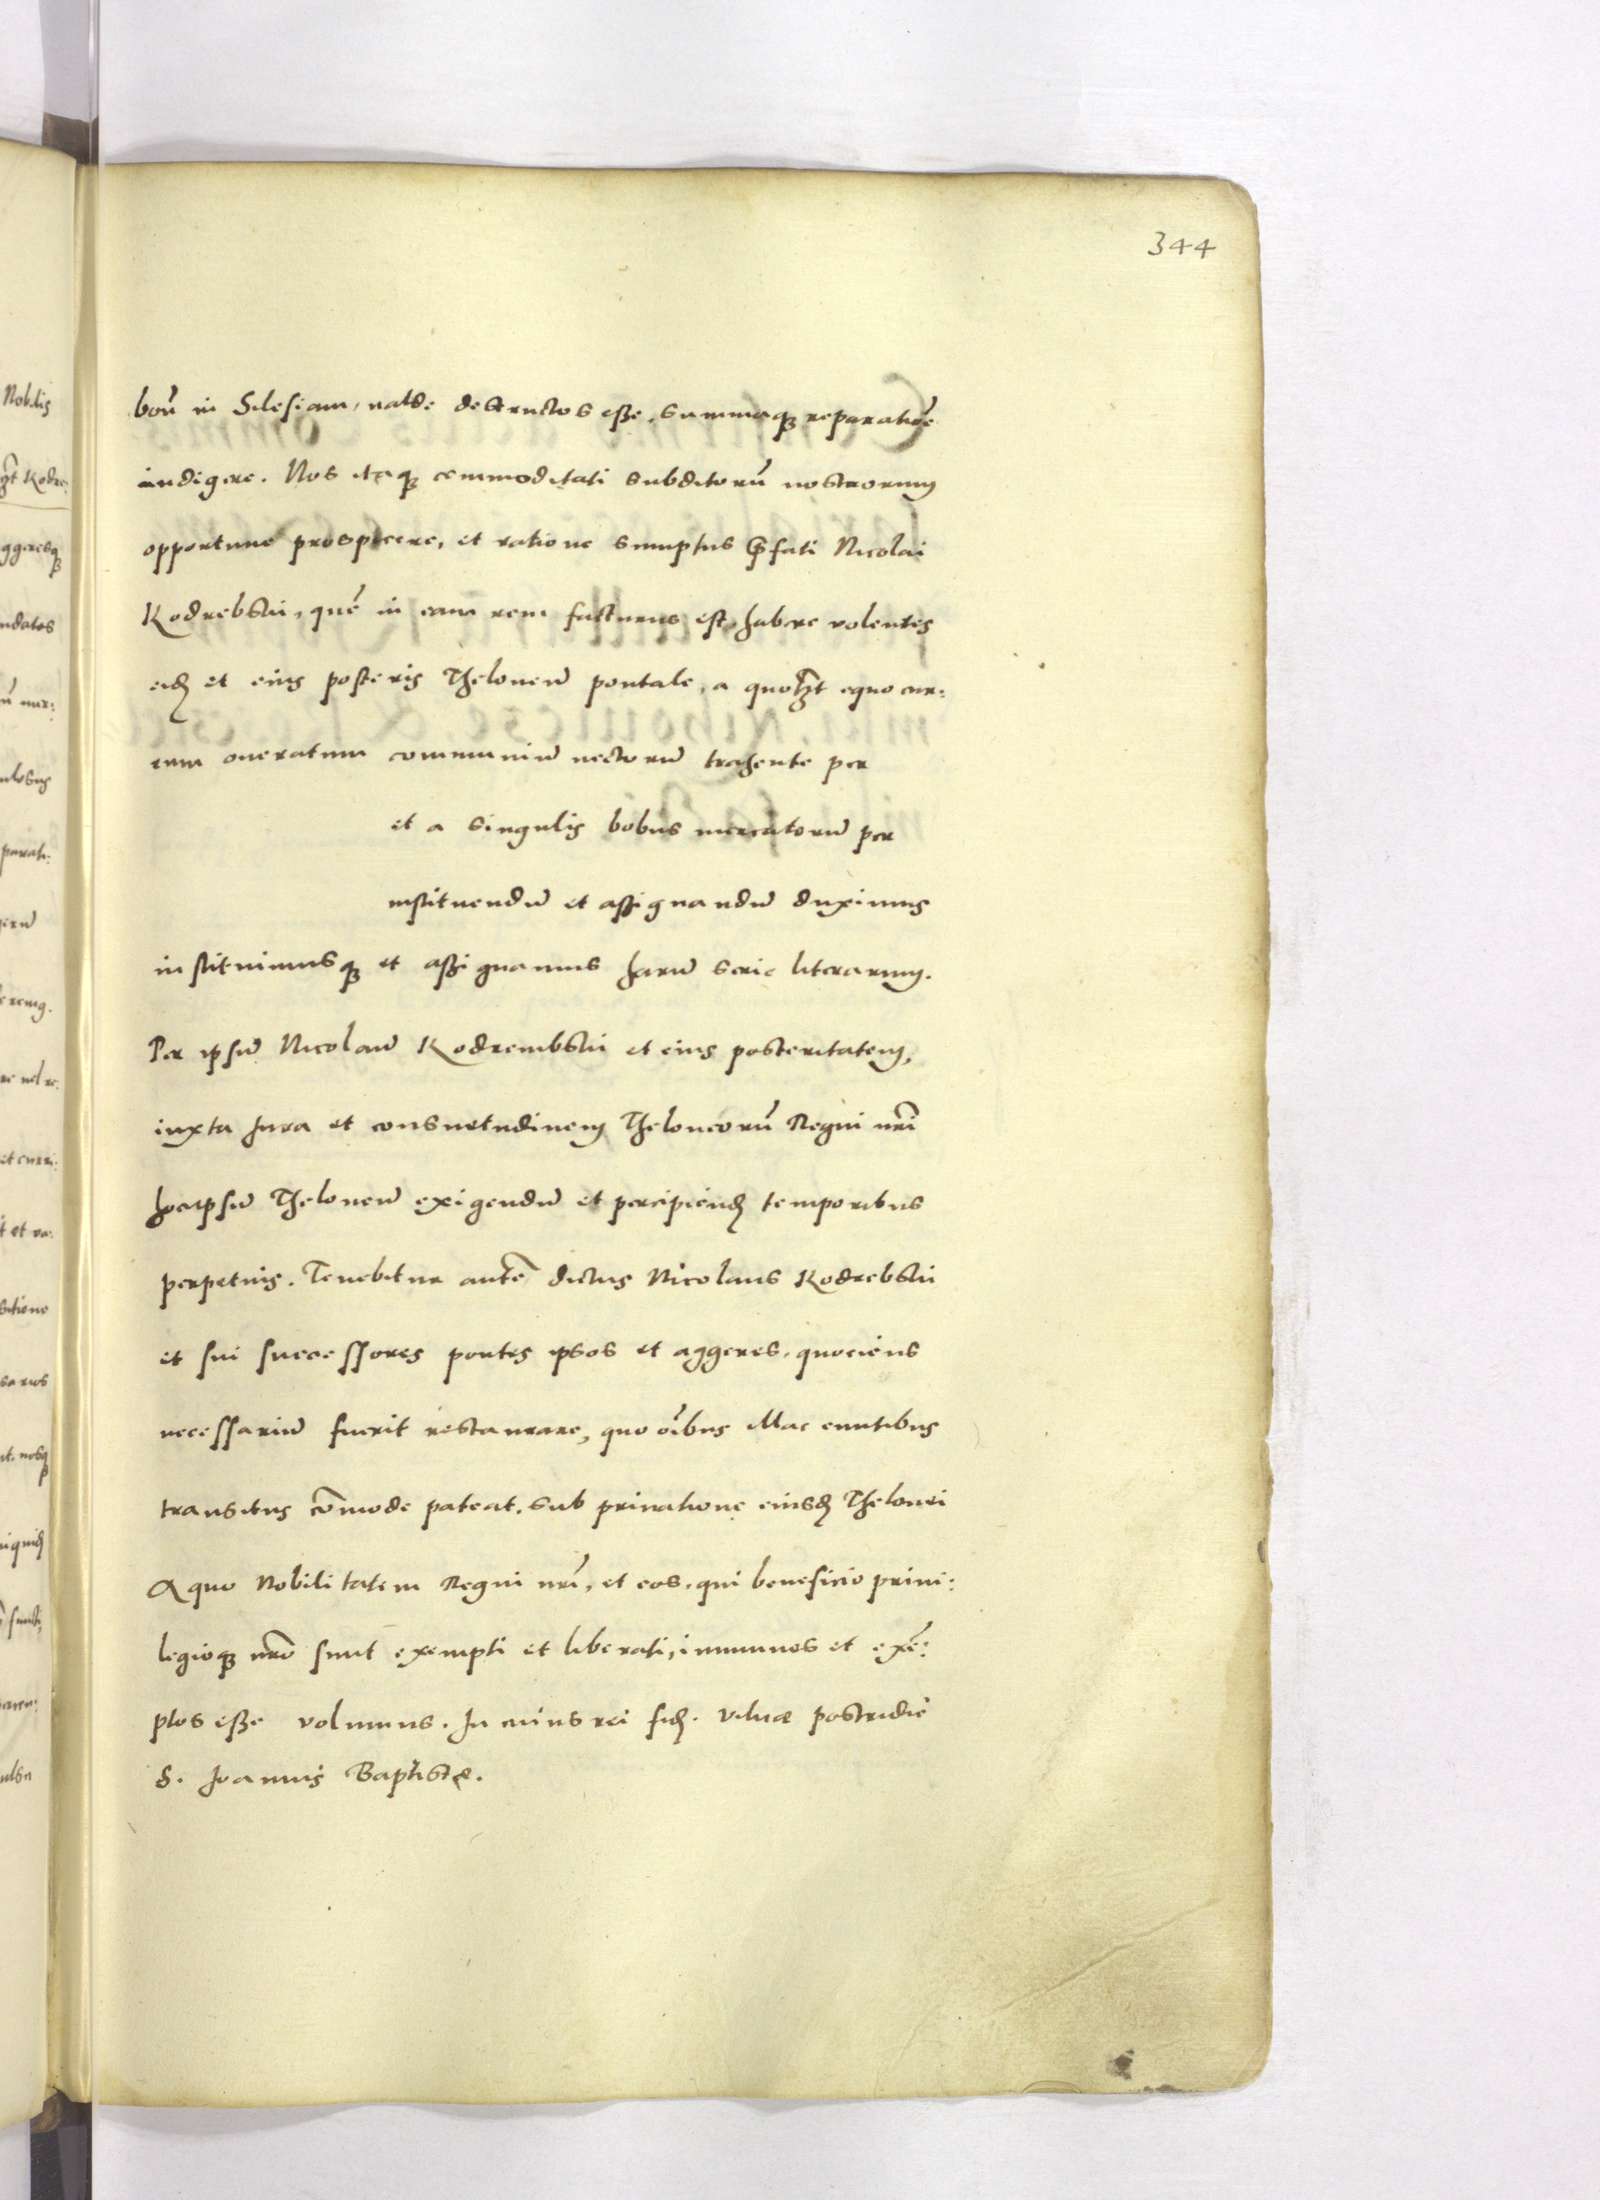 344
boū in Silesiam, valde destructos esse, summaq̃ reparatiōe
indigere. Nos itaq̃ commoditati subditorū nostrorum
opportune prospicere, et ratione sumptus p̄fati Nicolai
Kodrebskii, quē in eam rem facturus est, habere volentes
eid et eius posteris Theloneū pontale, a quolȝt equo cur:
rum oneratum communiū vectorū trahente per
et a singulis bobus mercatorū per
instituendū et assignandū duximus
instituimusq̃ et assignamus harū serie literarum.
Per ipsū Nicolaū Kodrembskii et eius posteritatem,
iuxta Jura et consuetudinem Theloneorū Regni nr̄i
hocipsū Theloneū exigendū et percipiend temporibus
perpetuis. Tenebitur autē dictus Nicolaus Kodrebskii
et sui successores pontes ipsos et aggeres, quociens
necessariū fuerit restaurare, quo oībus illac euntibus
transitus cōmode pateat, sub privatione eiusd Thelonei
A quo Nobilitatem Regni nr̄i, et eos, qui beneficio privi:
legioq̃ nr̄o sunt exempti et liberati, immunes et exē:
ptos esse volumus. In cuius rei fid. Vilnæ postridie
S. Joannis Baptistæ.
Nobilis
ȝt Kodre:
aggeresq̃
ndatos
parati:
et curri:
sarios